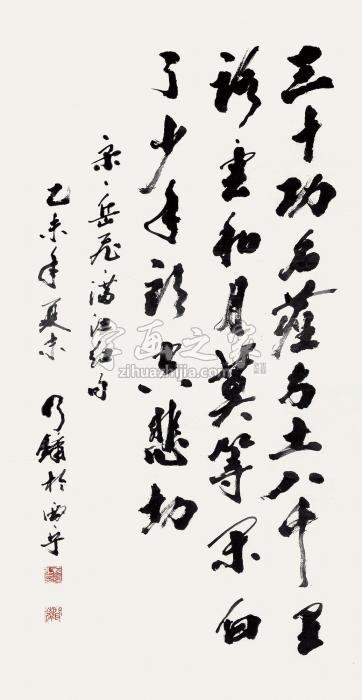 三十功名塵与土八千里
路雲和月莫等闲白
了少年頭空悲切
宋、岳飛滿江红句
乙未年夏末 乃 於西宁
字画之家
zihuazhijia.com